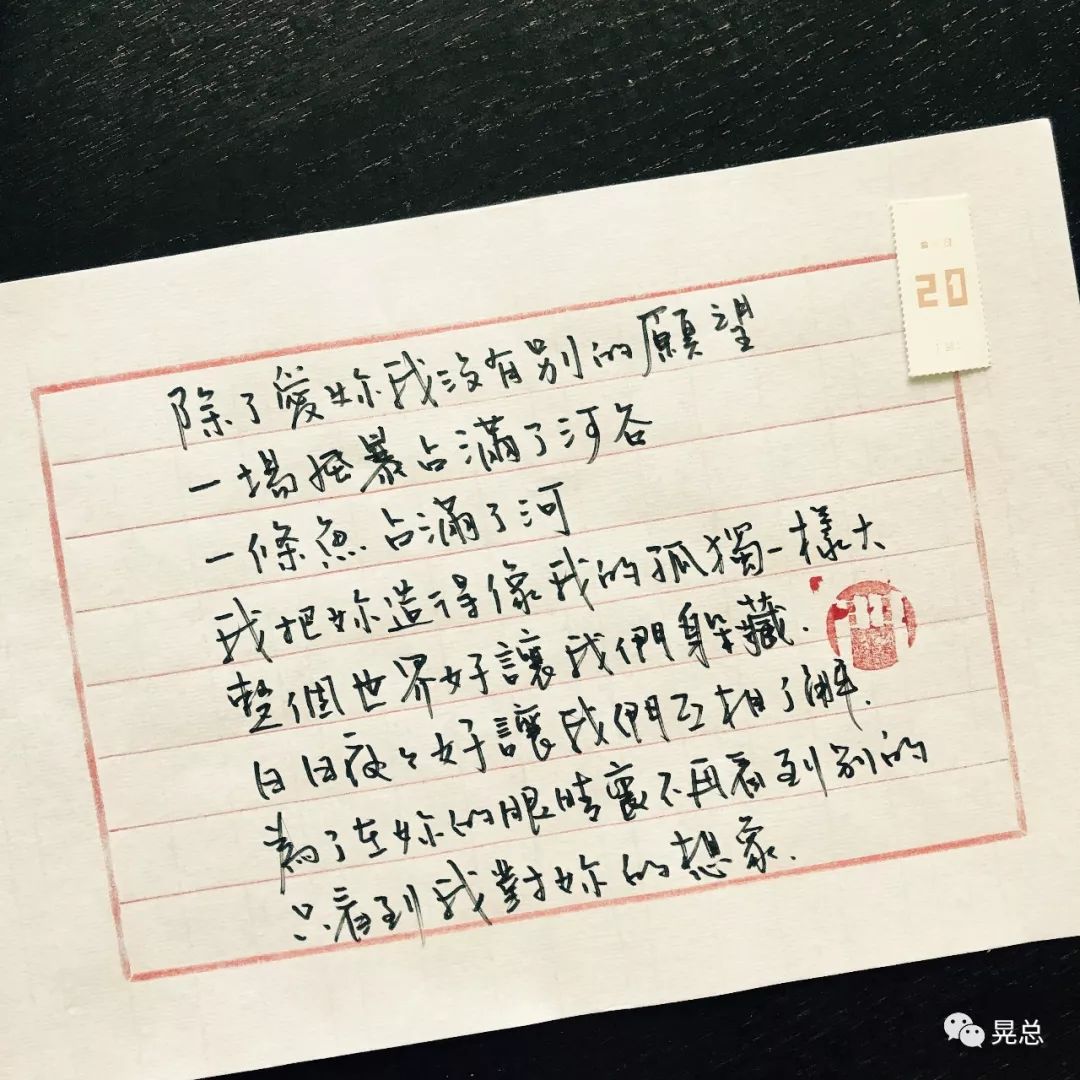 20
除了愛妳我沒有別的願望
一場風暴占滿了河谷
一條魚占滿了河
我把妳造得像我的孤獨一樣大
整個世界好讓我們躲藏.
日日夜々好讓我們互相了解.
為了在妳的眼睛裏不再看到別的
只看到我對妳的想象.
晃总